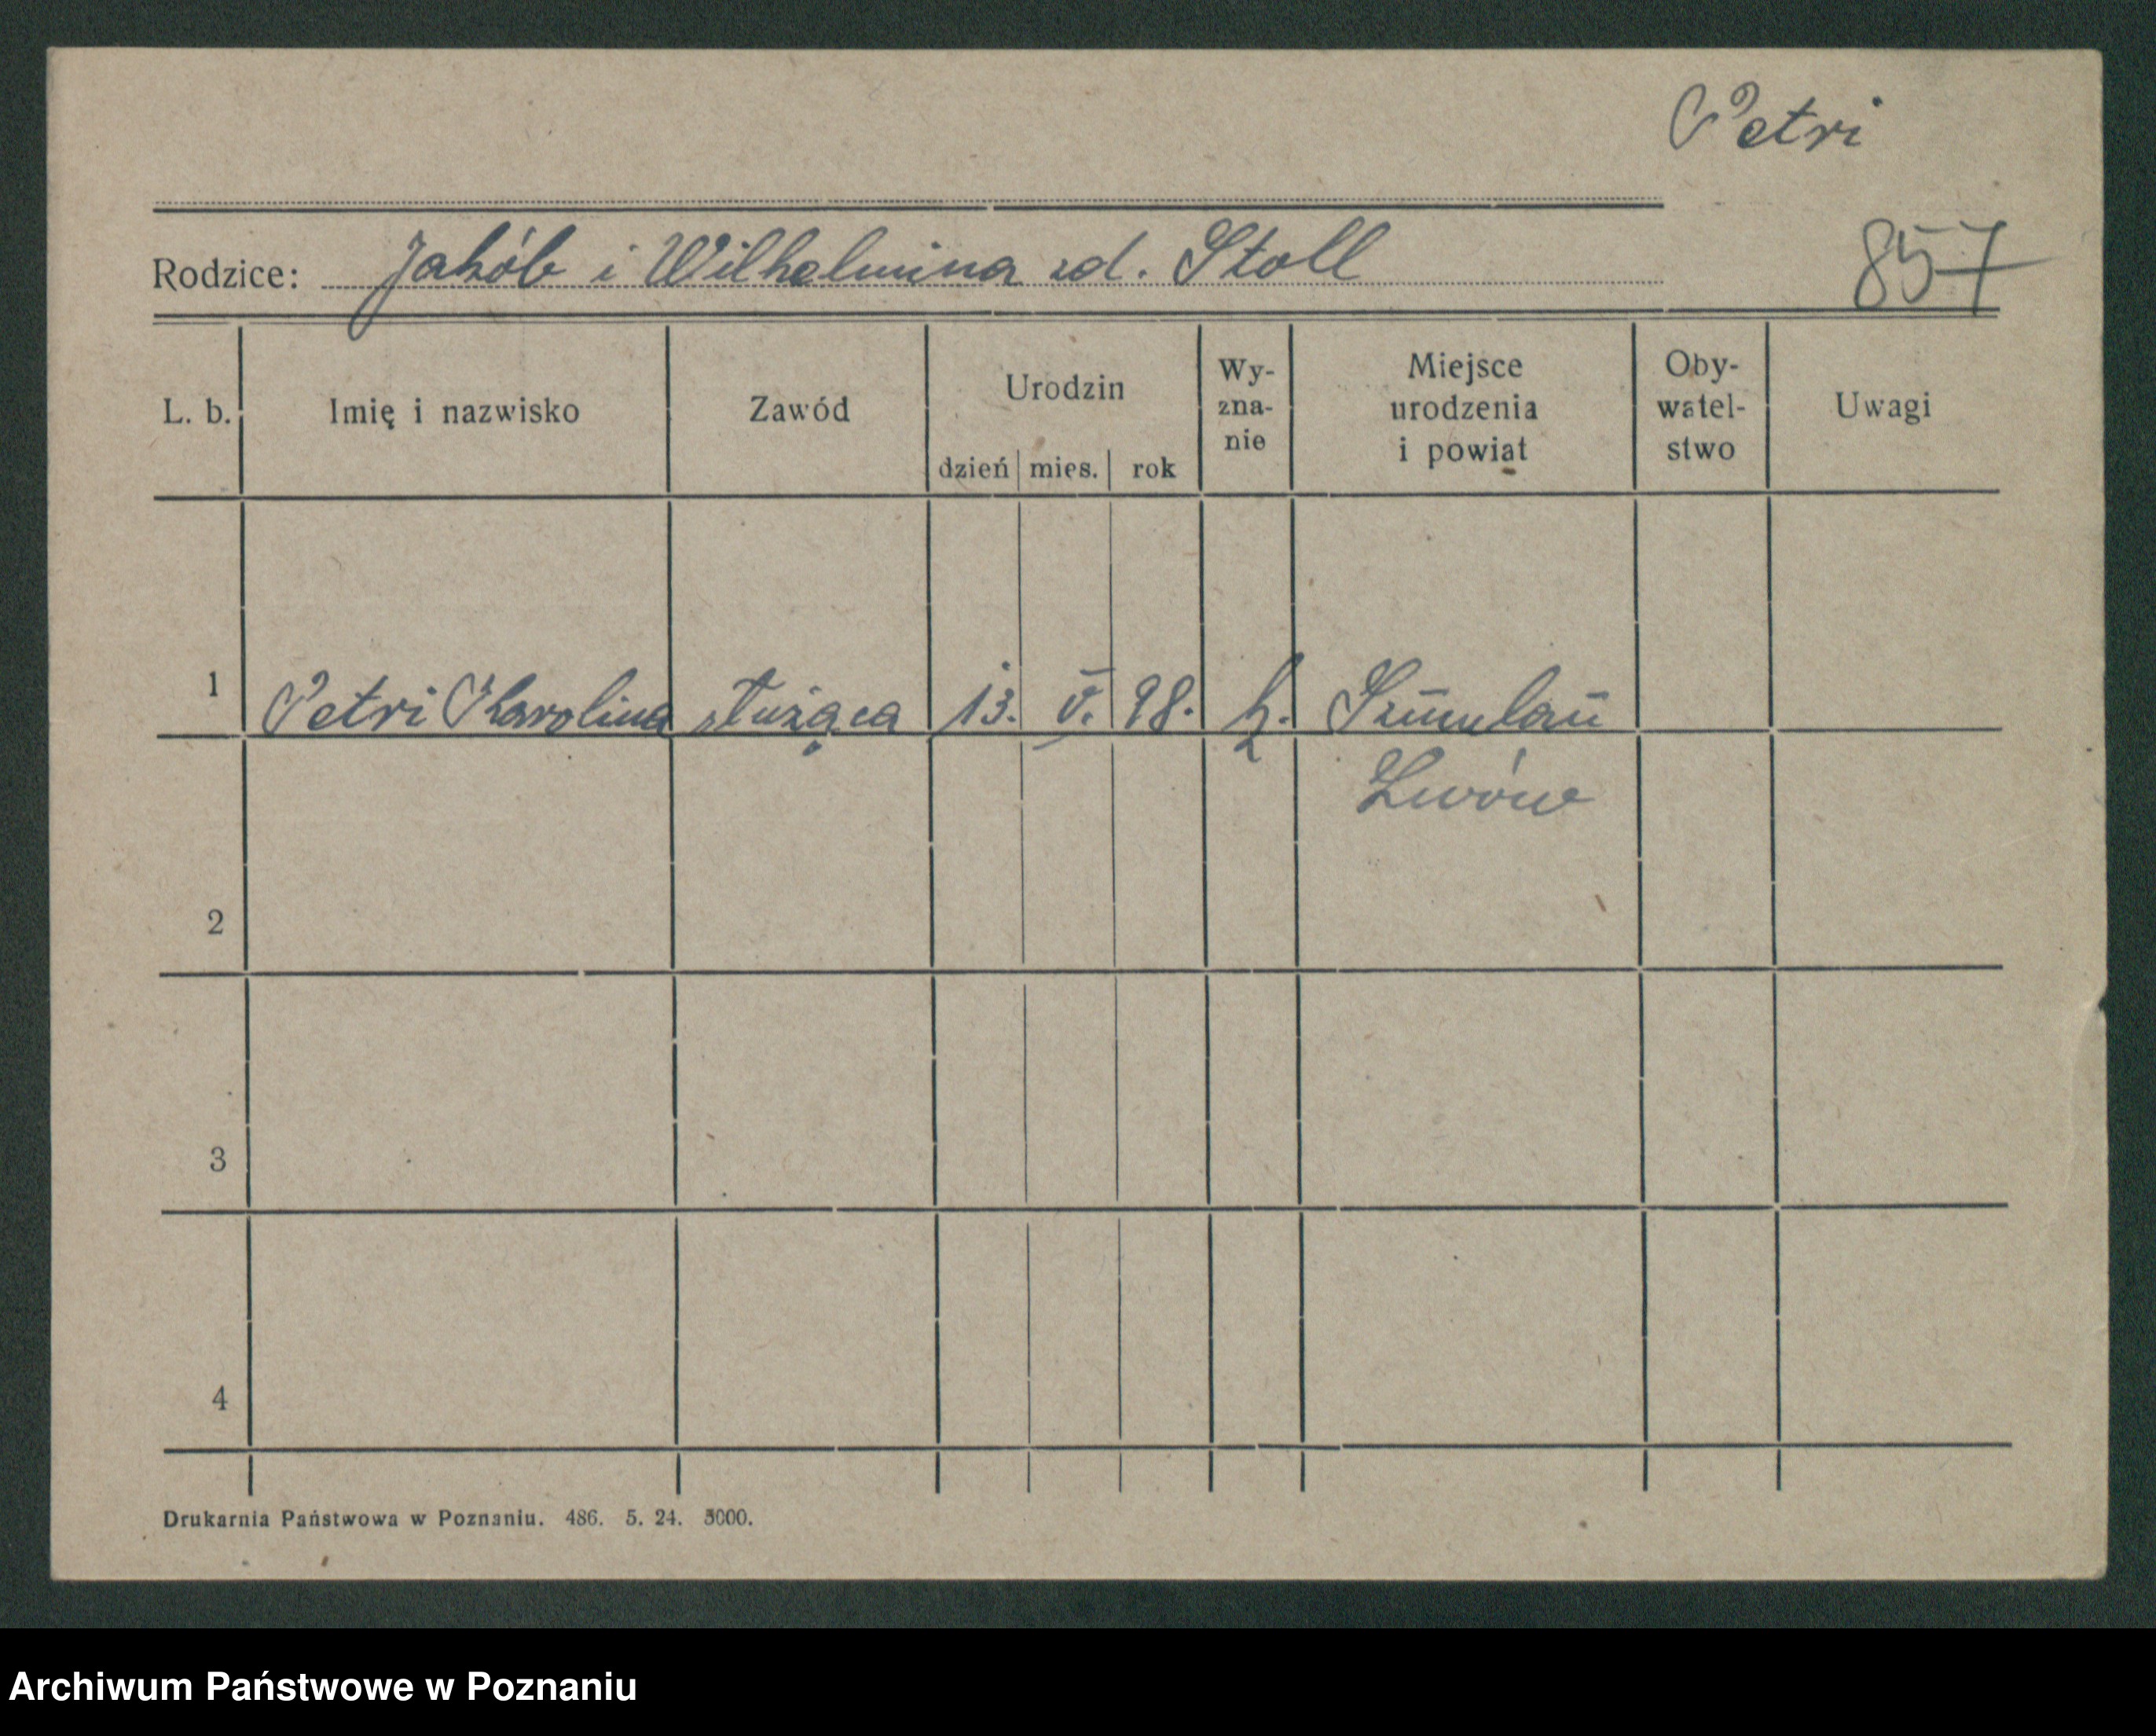 Petri
857
Rodzice: Jakób i Wilhelmina zd. Stoll
L. b. Imię i nazwisko Zawód Urodzin dzień mies. rok Wy-zna-nie Miejsce urodzenia i powiat Oby-watel-stwo Uwagi
1 Petri Karolina służąca 13. V. 98. Lwów
2
3
4
Drukarnia Państwowa w Poznaniu. 486. 5. 24. 3000.
Archiwum Państwowe w Poznaniu